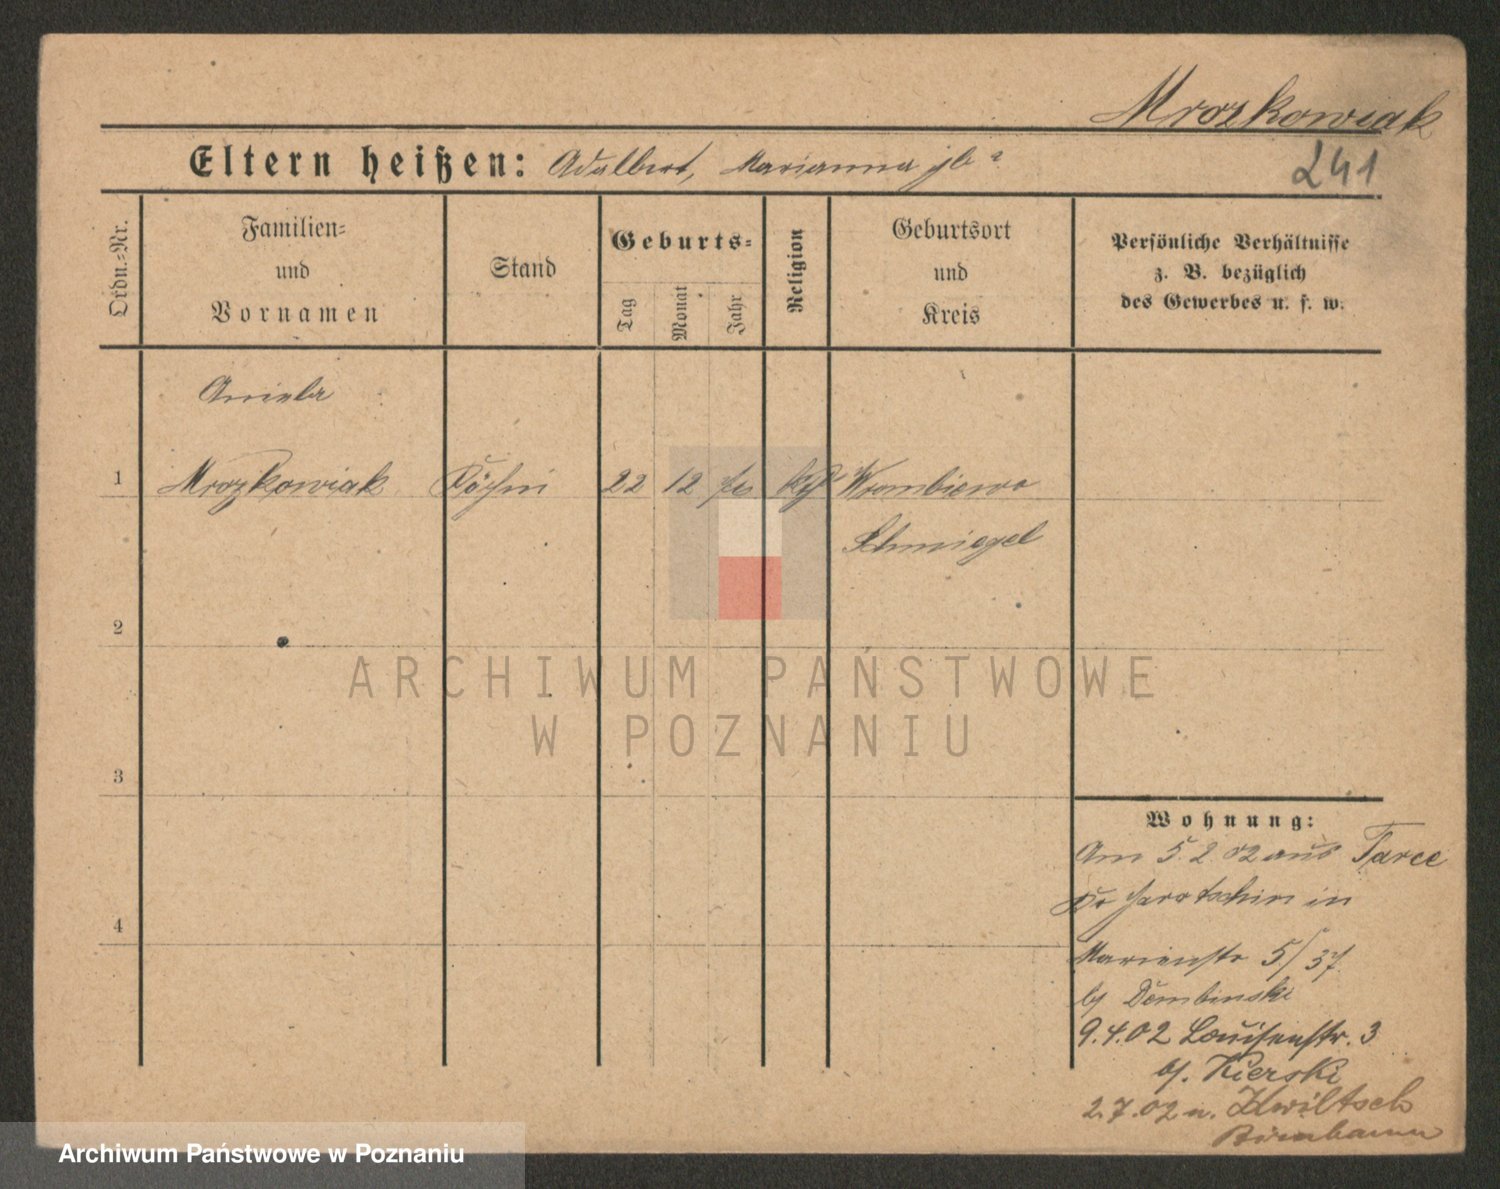 Mrozkowiak
Eltern heißen: Adalbert, Marianna gb ?
241
Ordn.-Nr.
Familien-
und
Vornamen
Stand
Geburts-
Tag
Monat
Jahr
Religion
Geburtsort
und
Kreis
Persönliche Verhältnisse
z. B. bezüglich
des Gewerbes u. s. w.
Aniela
1 Mrozkowiak Köchin 22 12 kth Wrombiewo
Schmiegel
2
3
4
ARCHIWUM PAŃSTWOWE
W POZNANIU
Wohnung:
Am 5.2 02 aus Tarce
Kr Jarotschin in
Marienstr 5/37.
bj Dembinski
9.4.02 Louisenstr. 3
bj. Kierski
2.7.02 n. Kwiltsch
Birnbaum
Archiwum Państwowe w Poznaniu